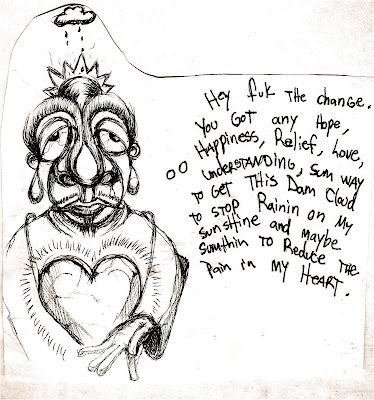 Hey fuk The change.
You Got any Hope,
Happiness, Relief, Love,
understanding, sum way
to Get This Dam Cloud
to stop Rainin on My
sunshine and maybe
sumthin to Reduce The
Pain in My Heart.